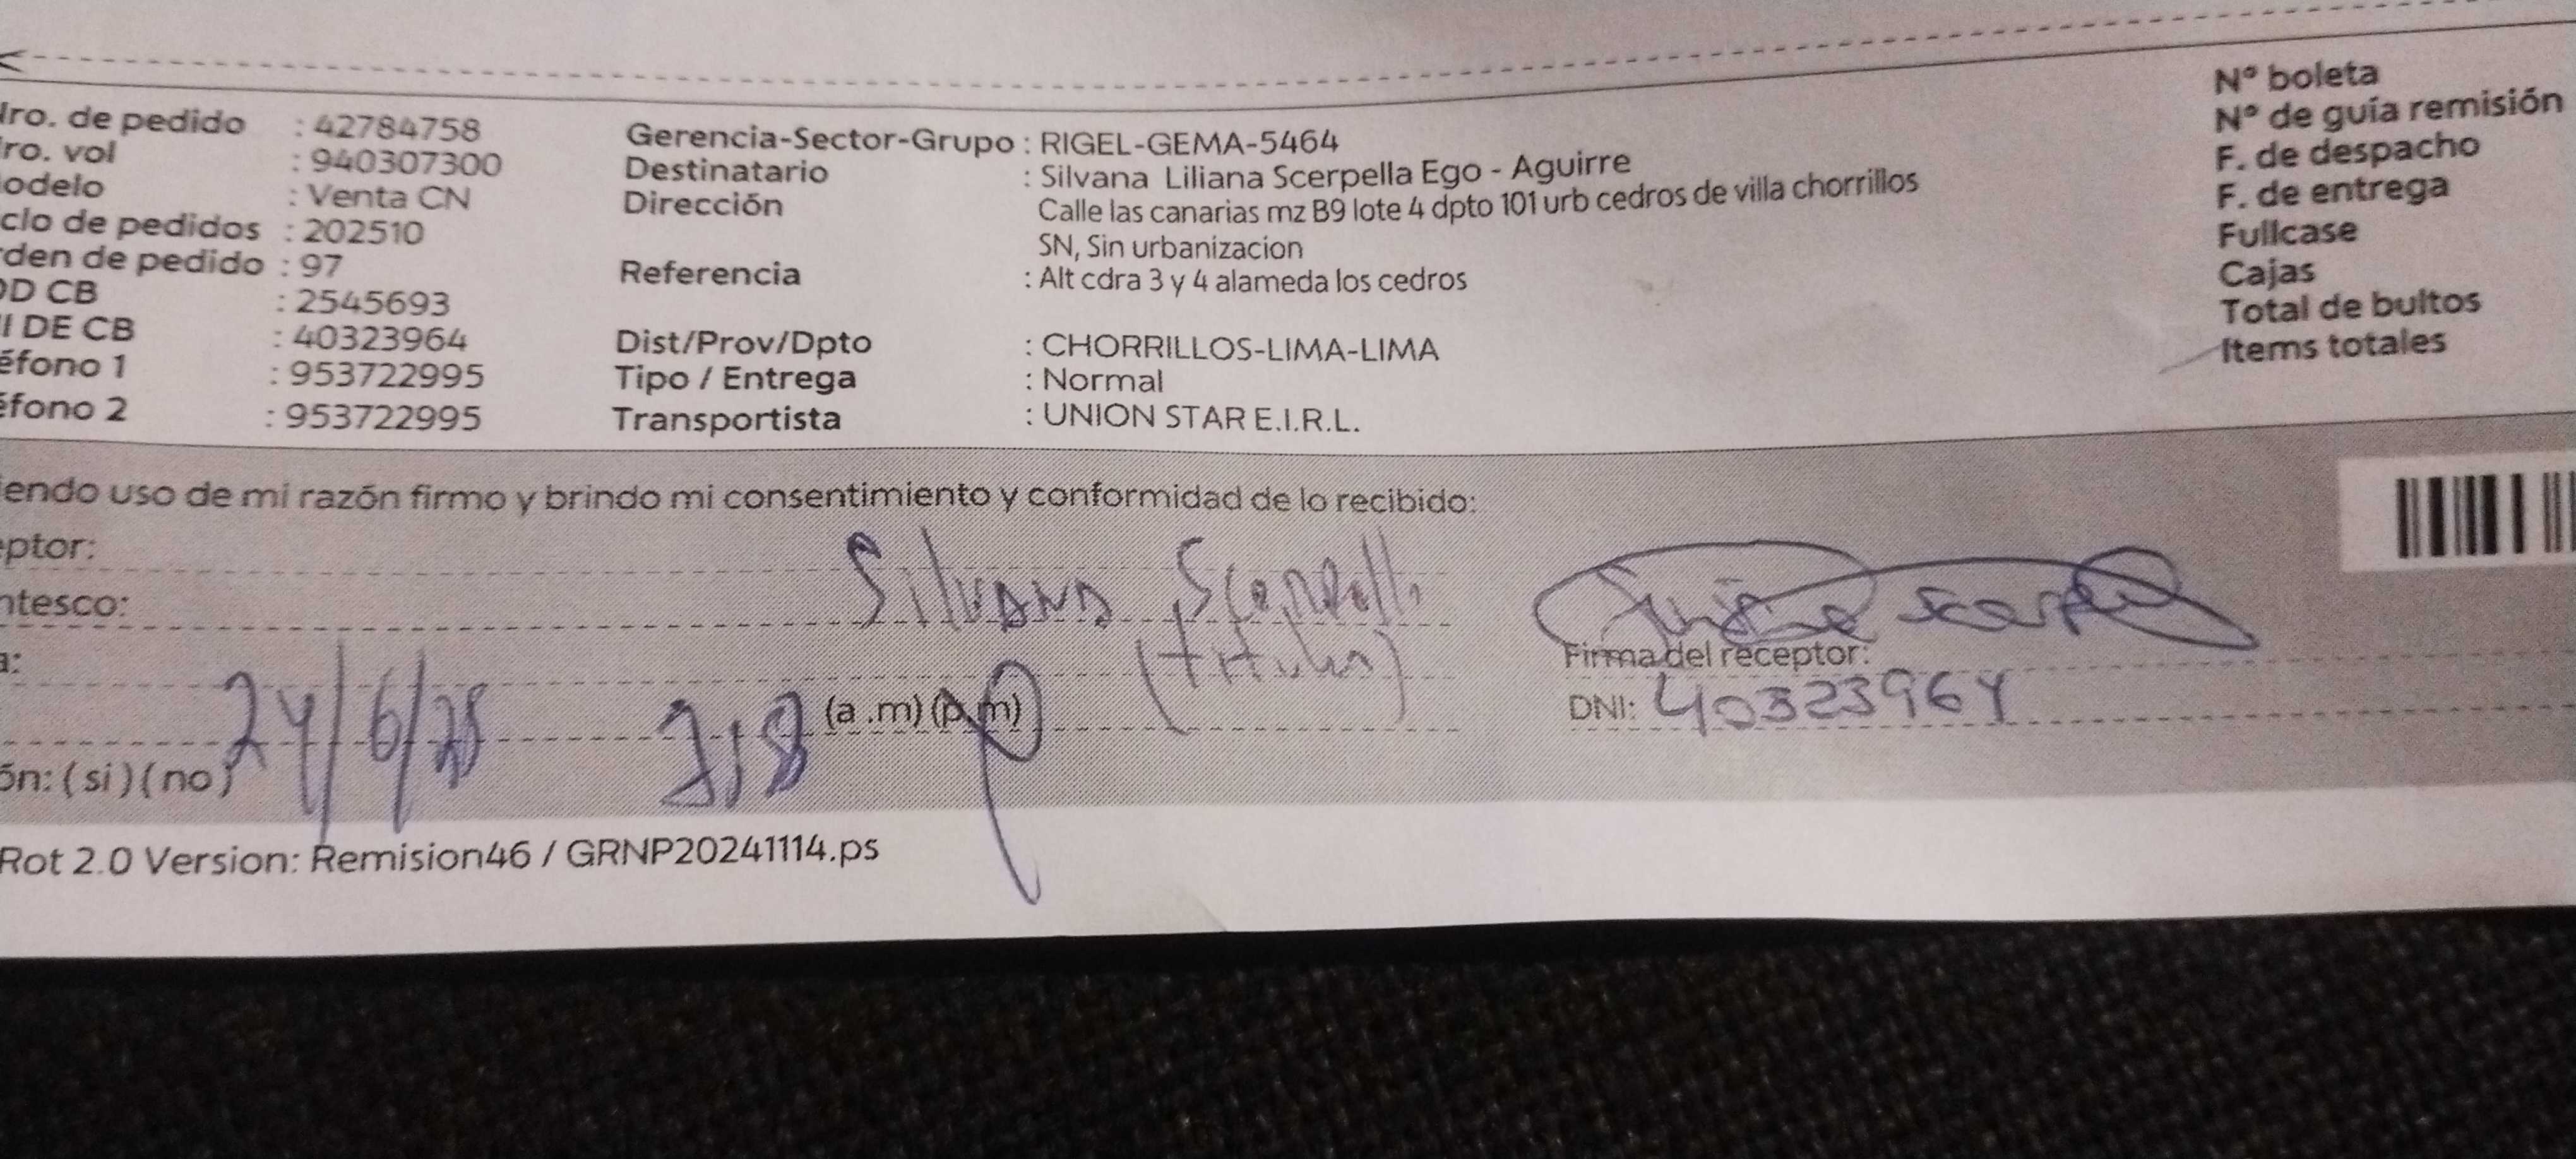 Nro. de pedido : 42784758
ro. vol : 940307300
odelo : Venta CN
clo de pedidos : 202510
den de pedido : 97
OD CB : 2545693
I DE CB : 40323964
éfono 1 : 953722995
éfono 2 : 953722995
Gerencia-Sector-Grupo : RIGEL-GEMA-5464
Destinatario : Silvana Liliana Scerpella Ego - Aguirre
Dirección Calle las canarias mz B9 lote 4 dpto 101 urb cedros de villa chorrillos
SN, Sin urbanizacion
Referencia : Alt cdra 3 y 4 alameda los cedros
Dist/Prov/Dpto : CHORRILLOS-LIMA-LIMA
Tipo / Entrega : Normal
Transportista : UNION STAR E.I.R.L.
N° boleta
N° de guía remisión
F. de despacho
F. de entrega
Fullcase
Cajas
Total de bultos
Items totales
iendo uso de mi razón firmo y brindo mi consentimiento y conformidad de lo recibido:
eptor: Silvana
ntesco:
a:
24/6/25 (a .m) (p.m)
Firma del receptor:
DNI: 40323964
ón: (si) (no)
Rot 2.0 Version: Remision46 / GRNP20241114.ps